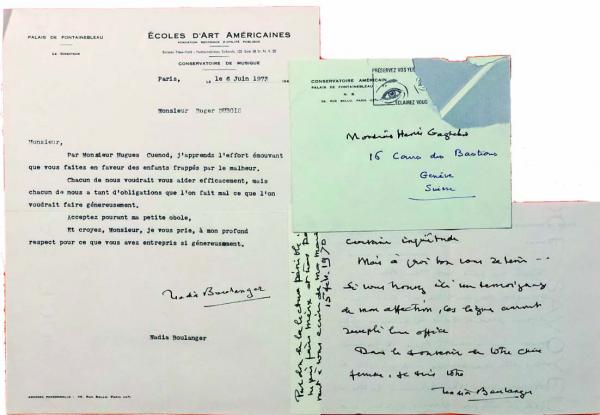 PALAIS DE FONTAINEBLEAU
LE DIRECTEUR
ÉCOLES D'ART AMÉRICAINES
FONDATION RECONNUE D'UTILITÉ PUBLIQUE
CONSERVATOIRE DE MUSIQUE
Paris, LE le 6 Juin 1973
Monsieur Roger DUBOIS
Monsieur,
Par Monsieur Hugues Cuenod, j'apprends l'effort émouvant
que vous faites en faveur des enfants frappés par le malheur.
Chacun de nous voudrait vous aider efficacement, mais
chacun de nous a tant d'obligations que l'on fait mal ce que l'on
voudrait faire généreusement.
Acceptez pourant ma petite obole,
Et croyez, Monsieur, je vous prie, à mon profond
respect pour ce que vous avez entrepris si généreusement.
Nadia Boulanger
Nadia Boulanger
ADRESSE PERSONNELLE : 36, RUE BALLU, PARIS
CONSERVATOIRE AMÉRICAIN
PALAIS DE FONTAINEBLEAU
N. B.
36, RUE BALLU, PARIS
PRÉSERVEZ VOS YEUX
ÉCLAIREZ VOUS
Monsieur Henri
16 Cours des Bastions
Genève
Suisse
certaine inquiétude
Mais à quoi bon vous le
Si vous trouvez ici un témoignage
de mon affection, ces lignes auront
rempli leur office
Dans le souvenir de votre chère
femme, je suis vôtre
Nadia Boulanger
Pardon de la lecture pénible
15 fév. 1970